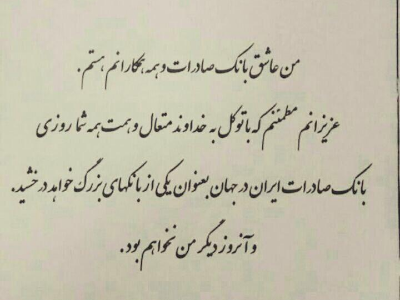 من عاشق بانک صادرات و همه همکارانم هستم.
عزیزانم مطمئنم که با توکل به خداوند متعال و همت همه شما روزی
بانک صادرات ایران در جهان بعنوان یکی از بانکهای بزرگ خواهد درخشید.
و آنروز دیگر من نخواهم بود.